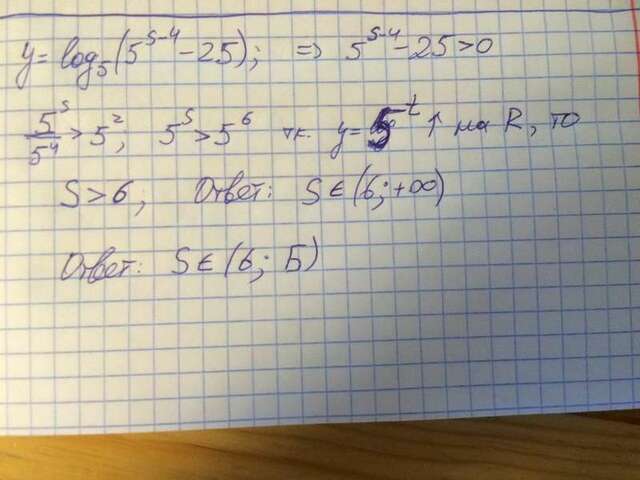 y = log₅(5^(S-4) - 25); => 5^(S-4) - 25 > 0
5^S/5^4 > 5^2; 5^S > 5^6 т.к. y = 5^t ↑ на R, то
S > 6; Ответ: S ∈ (6; +∞)
Ответ: S ∈ (6; Б)